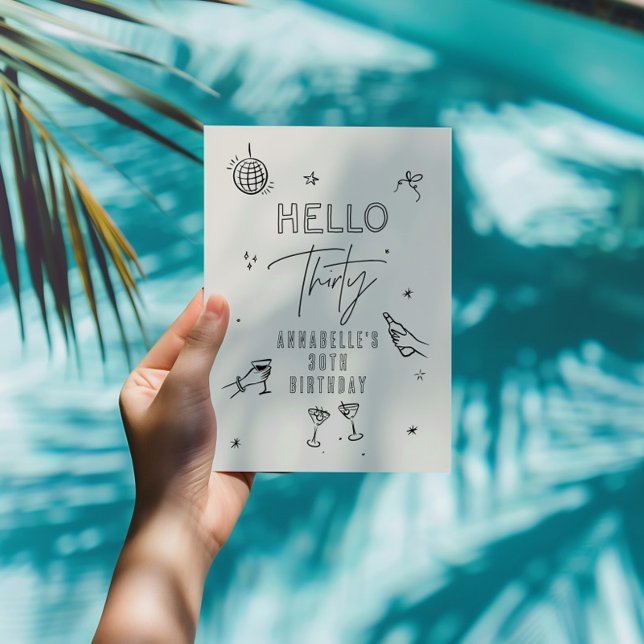 HELLO
Thirty
ANNABELLE'S
30TH
BIRTHDAY